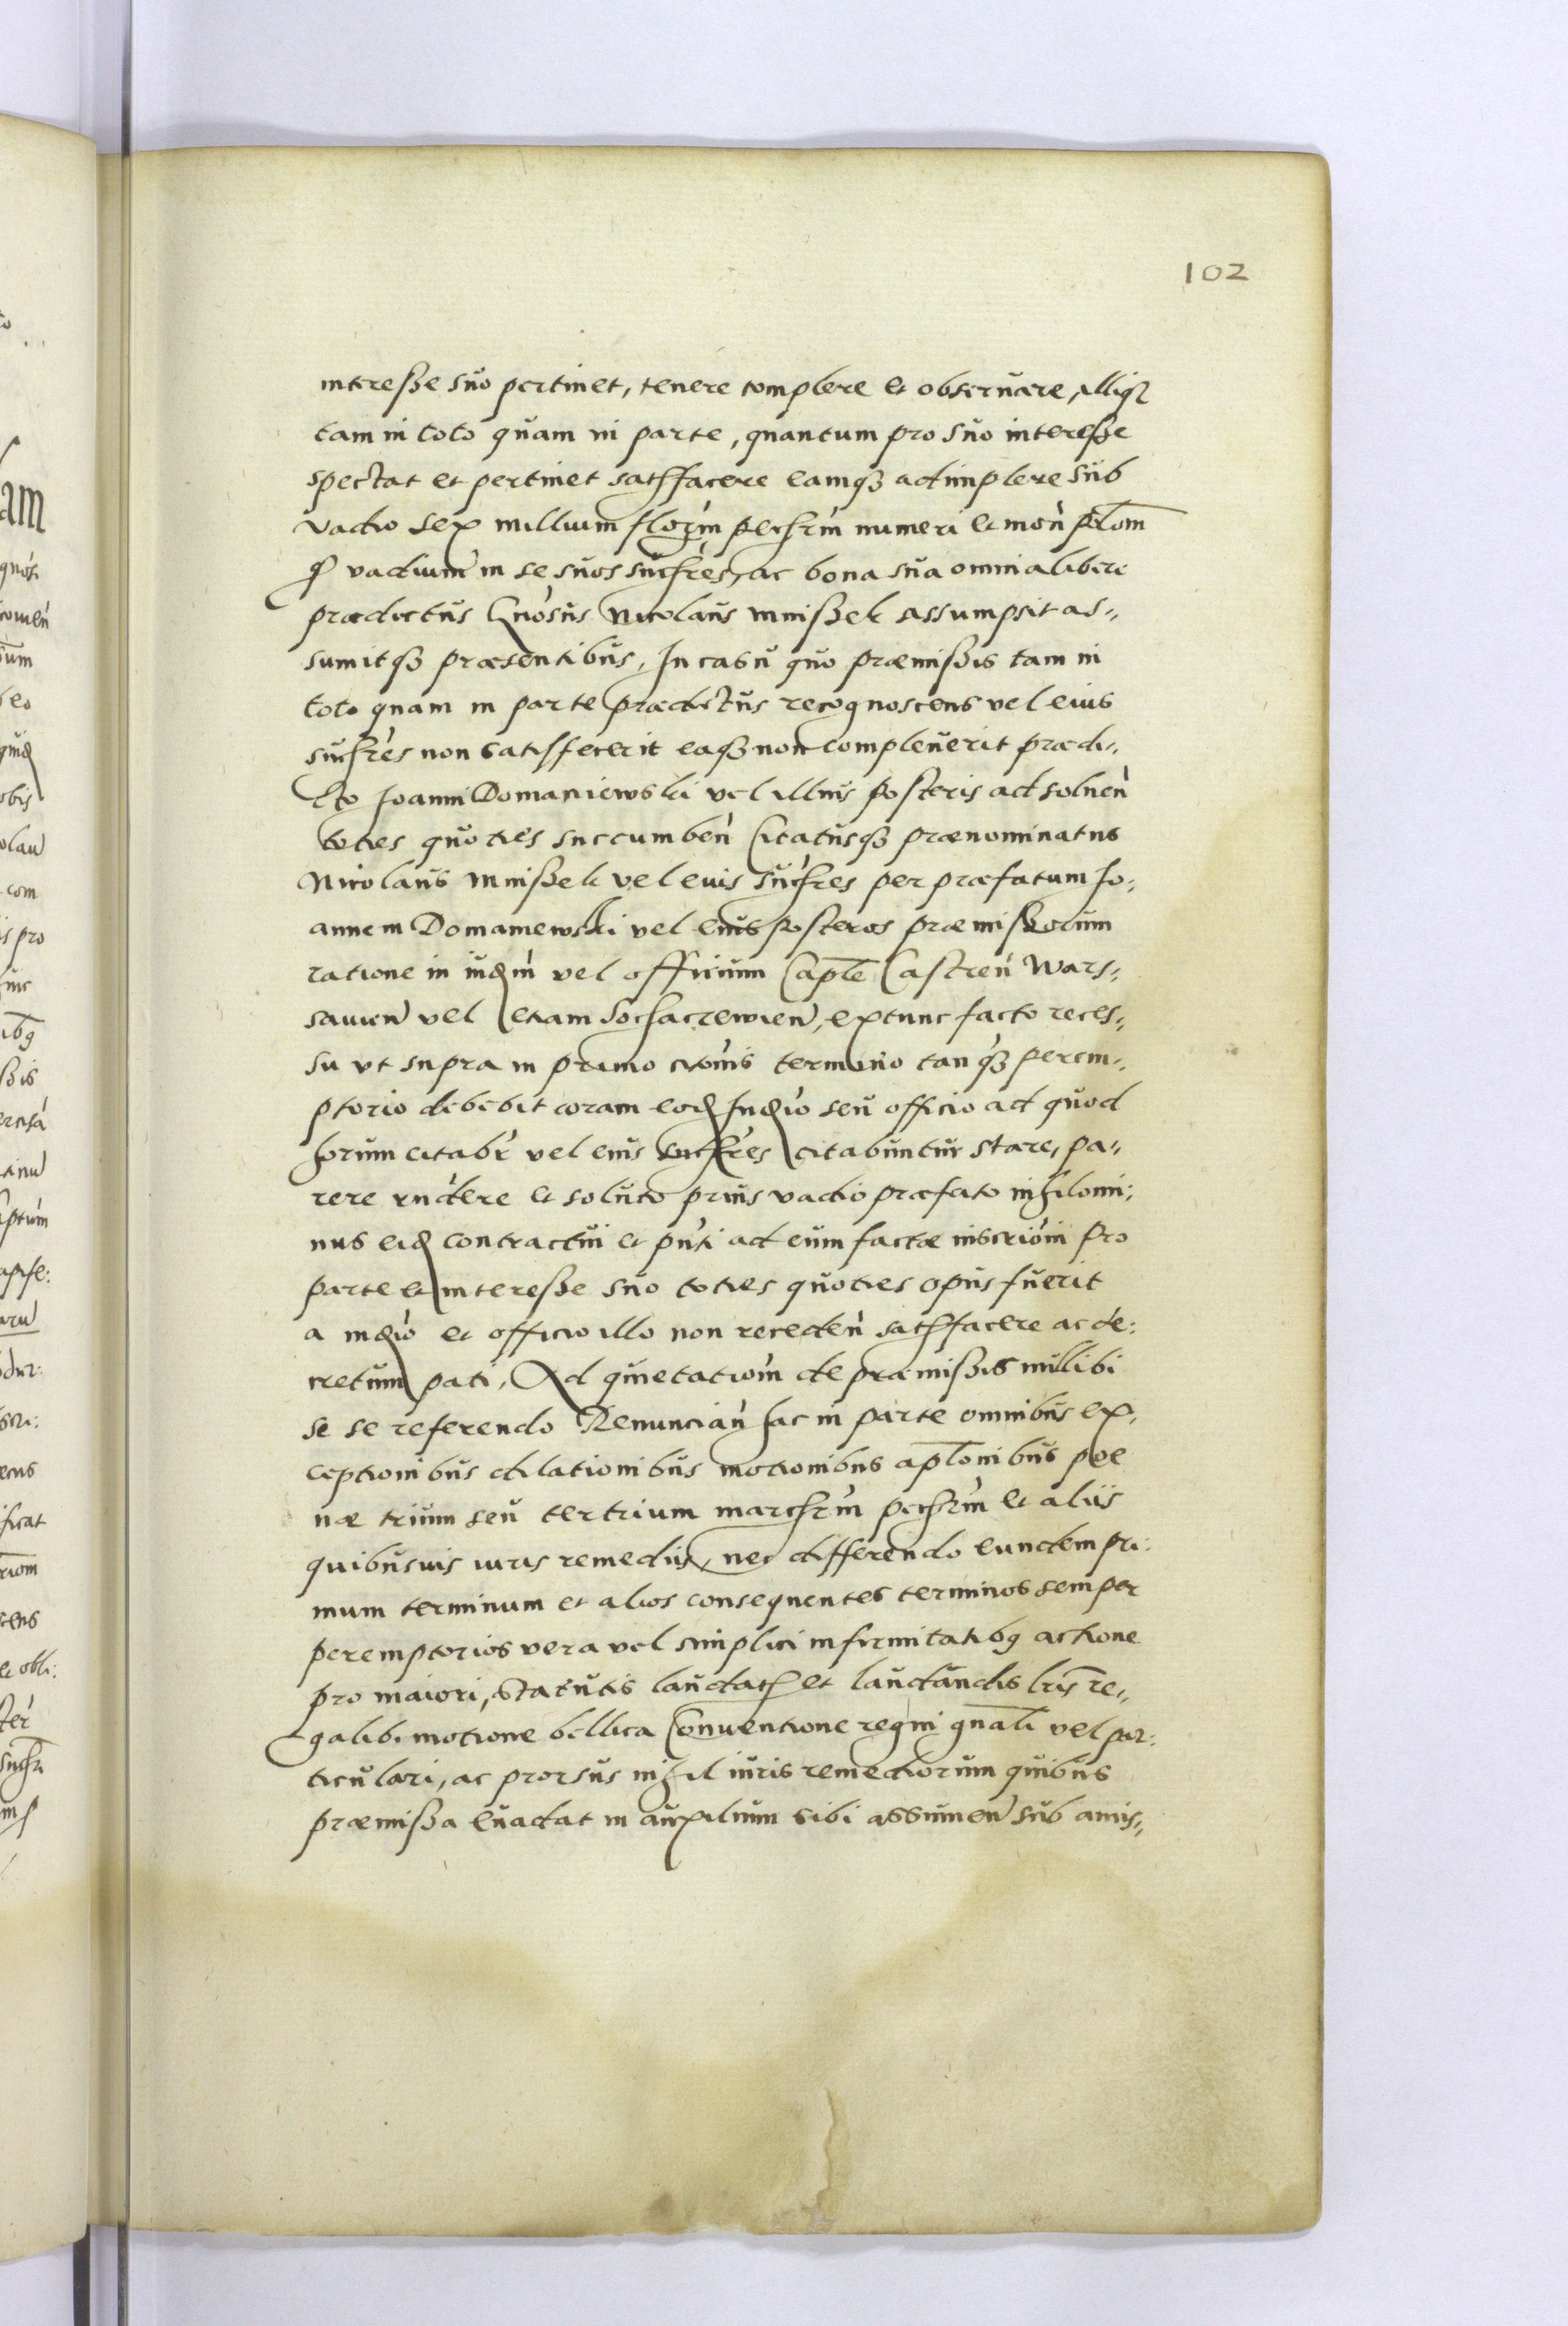 102
interesse suo pertinet, tenere complere et obseruare, illiq3
tam in toto quam in parte, quantum pro suo interesse
spectat et pertinet satisfacere eamq3 adimplere sub
vadio sex millium florīm pecHrīm numeri et mon̄ pol̄om
qd vadium in se suos succhr̄es, ac bona sua omnia libere
prædictus Gn̄osus Nicolaus Mnissek assumpsit as=
sumitq3 præsentibus, In casu quo præmissis tam in
toto quam in parte prædictus recognoscens vel eius
succhr̄es non satisfecerit eaq3 non compleuerit prædi,
cto Joanni Domaniewski vel illius posteris ad soluen̄
toties quoties succumben̄ Citatusq3 prænominatus
Nicolaus Mnissek vel eius succhr̄es per præfatum Jo,
annem Domaniewski vel eius posteros præmissorum
ratione in iud̄m vel officium Cap̄le Castren̄ Wars=
sauien̄ vel etiam Sochaczewien̄, extunc facto reces=
su vt supra in primo citōnis termino tanq̄3 perem=
ptorio debebit coram eod̄ Iud̄io seu officio ad quod
horum citabr̄ vel eius succhr̄es citabuntur stare, pa=
rere rn̄dere et soluto prius vadio præfato nihilomi:
nus eid̄ contractui et pn̄ti ad eum factæ inscriōni pro
parte et interesse suo toties quoties opus fuerit
a iud̄io et officio illo non receden̄ satisfacere ac de:
cretum pati, Ad quietatiōm de præmissis nullibi
se se referendo Renuncian̄ hac in parte omnibus ex,
ceptionibus dilationibus motionibus ap̄lonibus poe
næ trium seu ter trium marcHrīm pecHrīm et aliis
quibusuis iuris remediis, nec differendo eundem pri:
mum terminum et alios consequentes terminos semper
peremptorios vera vel simplici infirmitatibq actione
pro maiori, statutis laudatis et laudandis lr̄is re=
galib. motione bellica Conuentione regni gn̄ali vel par:
ticulari, ac prorsus nihil iuris remediorum quibus
præmissa euadat in auxilium sibi assumen̄ sub amis=